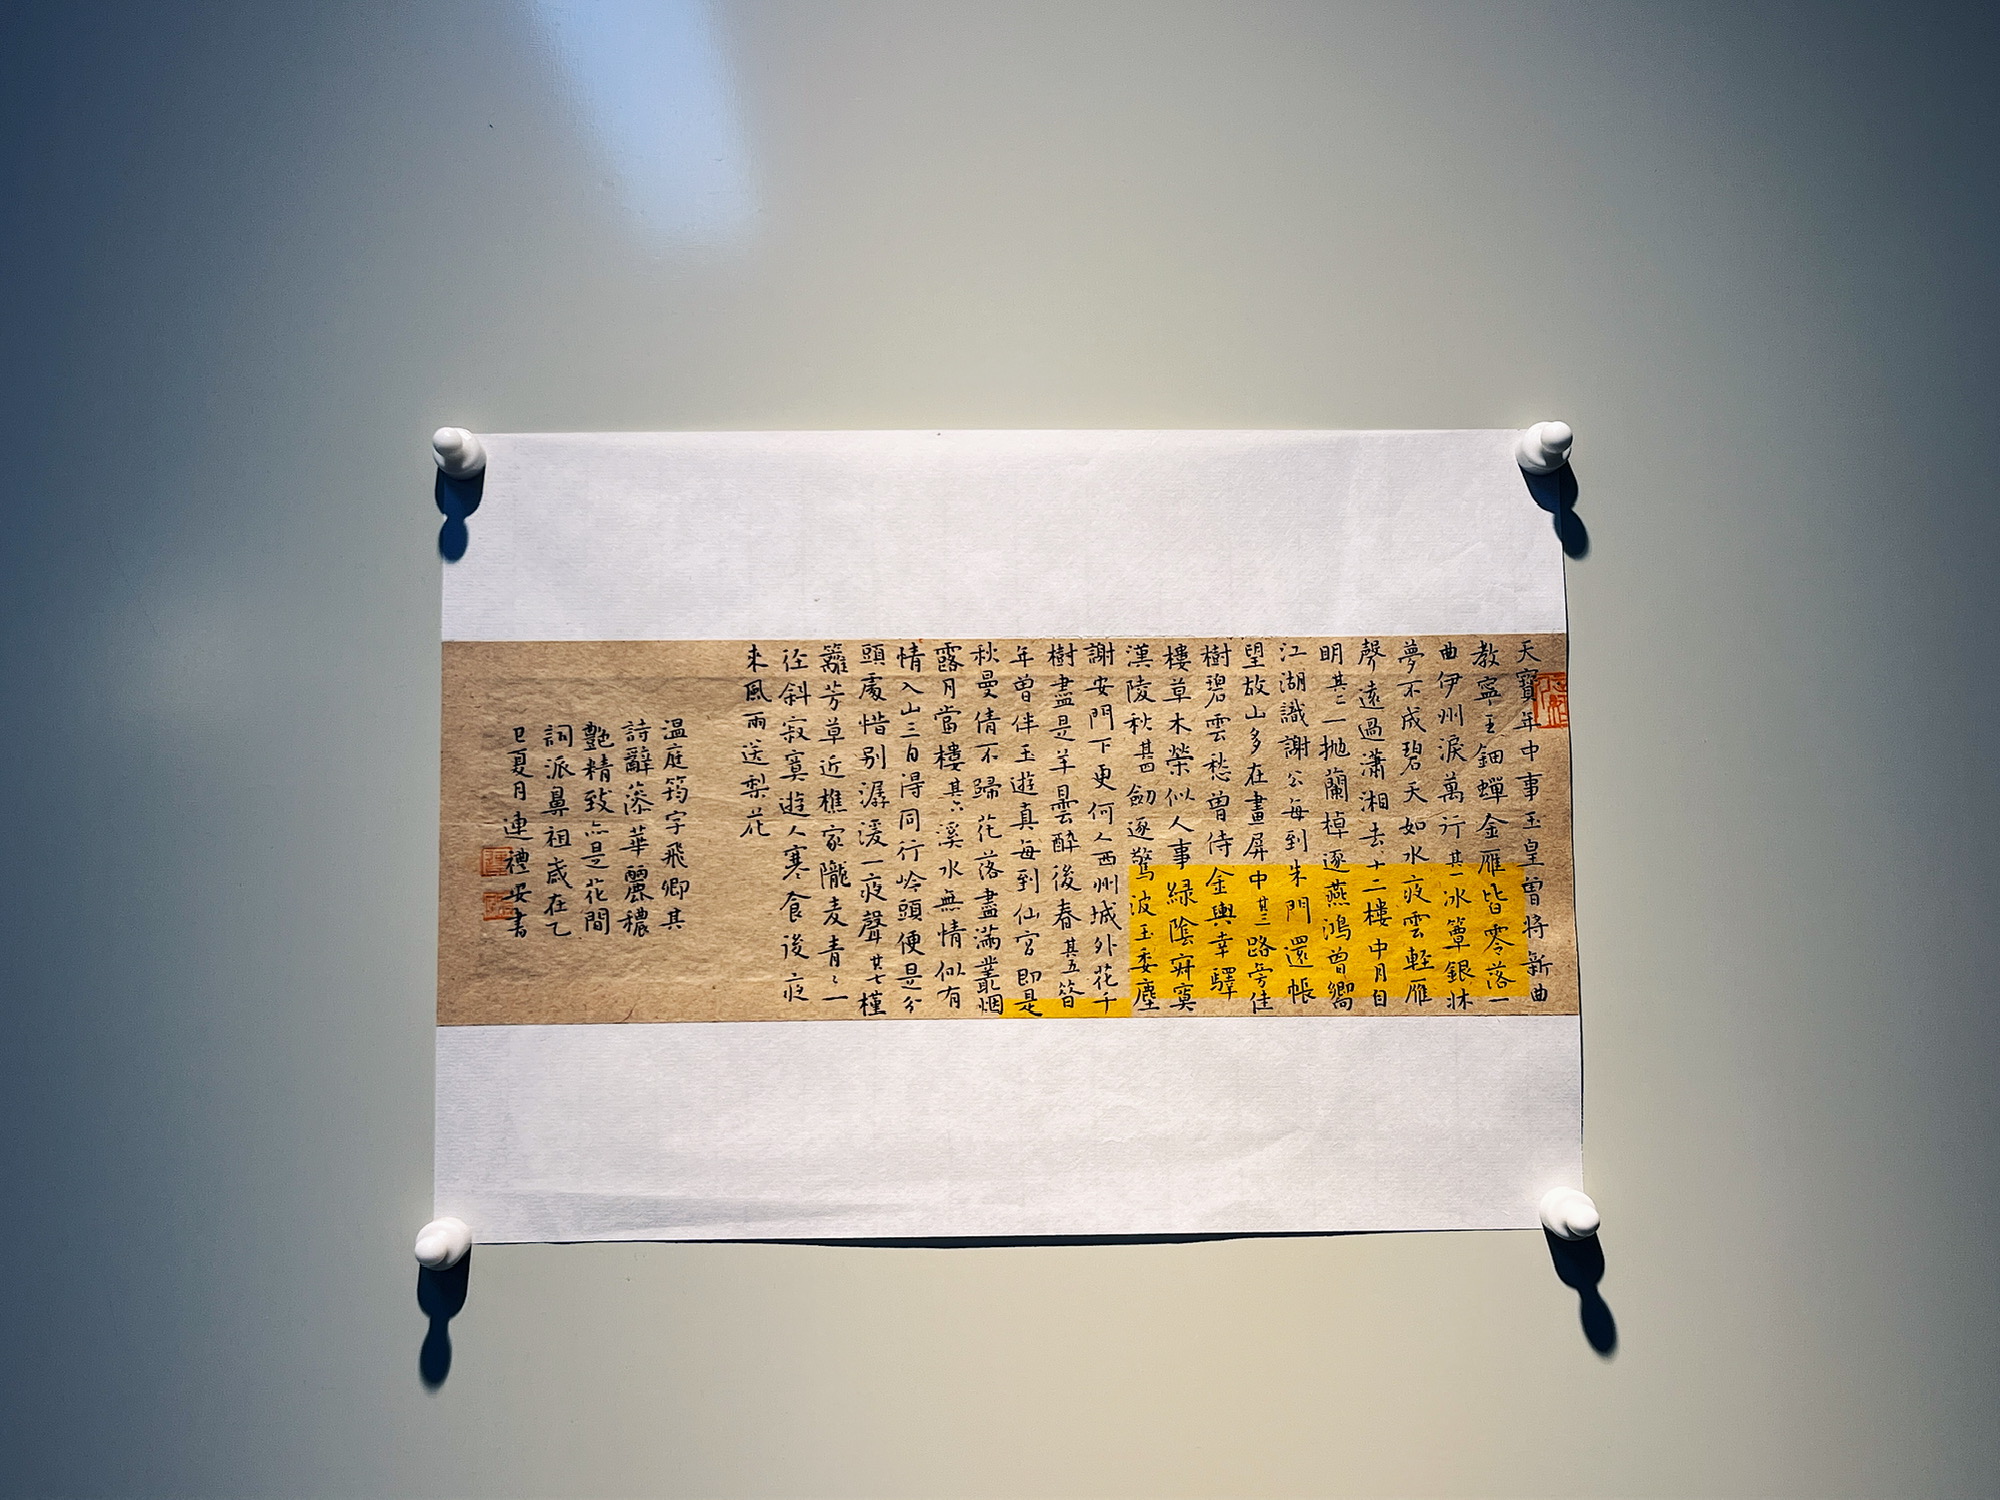 天寶年中事玉皇曾將新曲
教寧王鈿蟬金雁皆零落一
曲伊州淚萬行其一冰簟銀牀
夢不成碧天如水夜雲輕雁
聲遠過瀟湘去十二樓中月自
明其二一拋蘭棹逐燕鴻曾嚮
江湖識謝公每到朱門還帳
望故山多在畫屏中其三路旁佳
樹碧雲愁曾侍金輿幸驛
樓草木榮似人事綠陰寂寞
漢陵秋其四劒逐驚波玉委塵
謝安門下更何人西州城外花千
樹盡是羊曇醉後春其五昔
年曾伴玉遊真每到仙宮即是
秋曼倩不歸花落盡滿叢烟
露月當樓其六溪水無情似有
情入山三日得同行岭頭便是分
頭處惜別潺湲一夜聲其七槿
籬芳草近樵家隴麦青〻一
徑斜寂寞遊人寒食後夜
來風雨送梨花
溫庭筠字飛卿其
詩辭藻華麗穠
艷精致亦是花間
詞派鼻祖歲在乙
巳夏月連禮安書